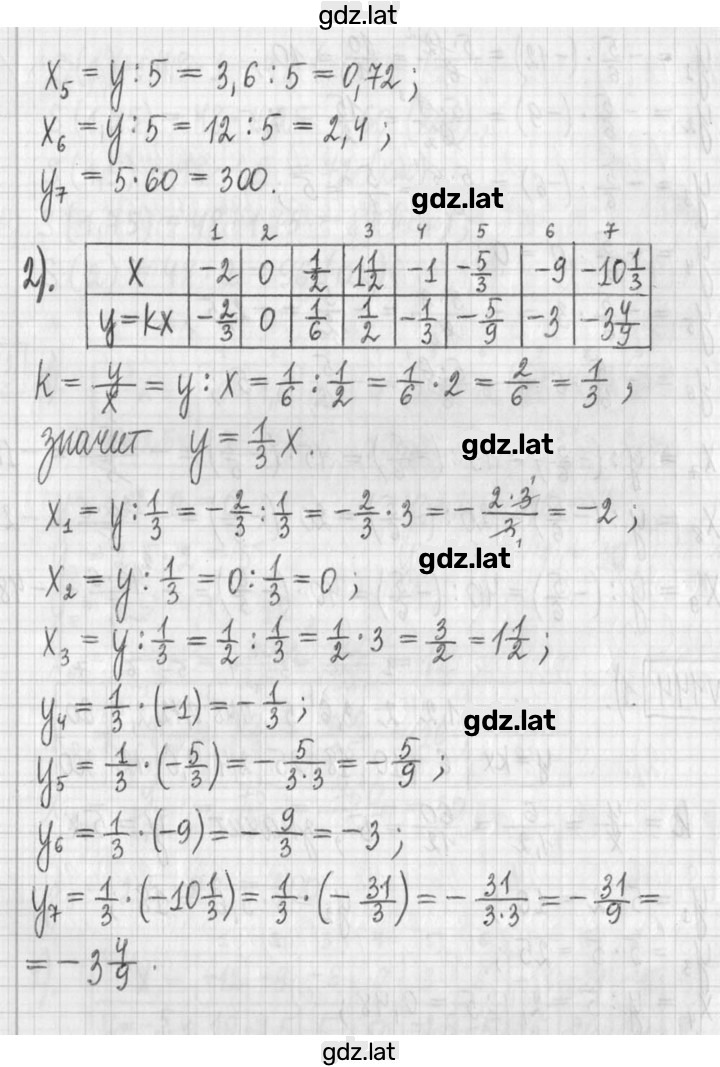 gdz.lat
x₅ = y : 5 = 3,6 : 5 = 0,72 ;
x₆ = y : 5 = 12 : 5 = 2,4 ;
y₇ = 5 · 60 = 300.
gdz.lat
1 2 3 4 5 6 7
2). x | -2 | 0 | 1/2 | 1 1/2 | -1 | -5/3 | -9 | -10 1/3
y = kx | -2/3 | 0 | 1/6 | 1/2 | -1/3 | -5/9 | -3 | -3 4/9
k = y/x = y : x = 1/6 : 1/2 = 1/6 · 2 = 2/6 = 1/3 ,
значит y = 1/3 x.
gdz.lat
x₁ = y : 1/3 = -2/3 : 1/3 = -2/3 · 3 = - 2·3¹/3₁ = -2 ;
gdz.lat
x₂ = y : 1/3 = 0 : 1/3 = 0 ;
x₃ = y : 1/3 = 1/2 : 1/3 = 1/2 · 3 = 3/2 = 1 1/2 ;
y₄ = 1/3 · (-1) = -1/3 ;
gdz.lat
y₅ = 1/3 · (-5/3) = - 5/3·3 = -5/9 ;
y₆ = 1/3 · (-9) = -9/3 = -3 ;
y₇ = 1/3 · (-10 1/3) = 1/3 · (-31/3) = - 31/3·3 = -31/9 =
= -3 4/9 .
gdz.lat